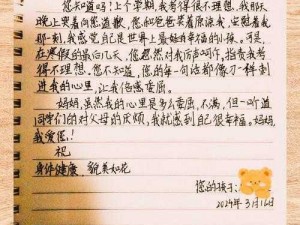 您知道吗?上个学期,我考得很不理想,我那天
晚上哭着向您道歉,您和爸爸笑着原谅我,安慰着我那
一刻,我感觉自己是世界上最幸福的小孩。可是,
在寒假的最后几天,您忽然对我厉声呵斥,指责我考
得不理想。您不知道,您的每一句话都像刀一样刺
进我的心里,让我倍感委屈。
妈妈,虽然我的心里是多么委屈,不满,但一听道
同学们的对父母的厌烦,我就感到自己很幸福。妈妈,
我爱您!
祝
身体健康,貌美如花
您的孩子:
2024年3月16日